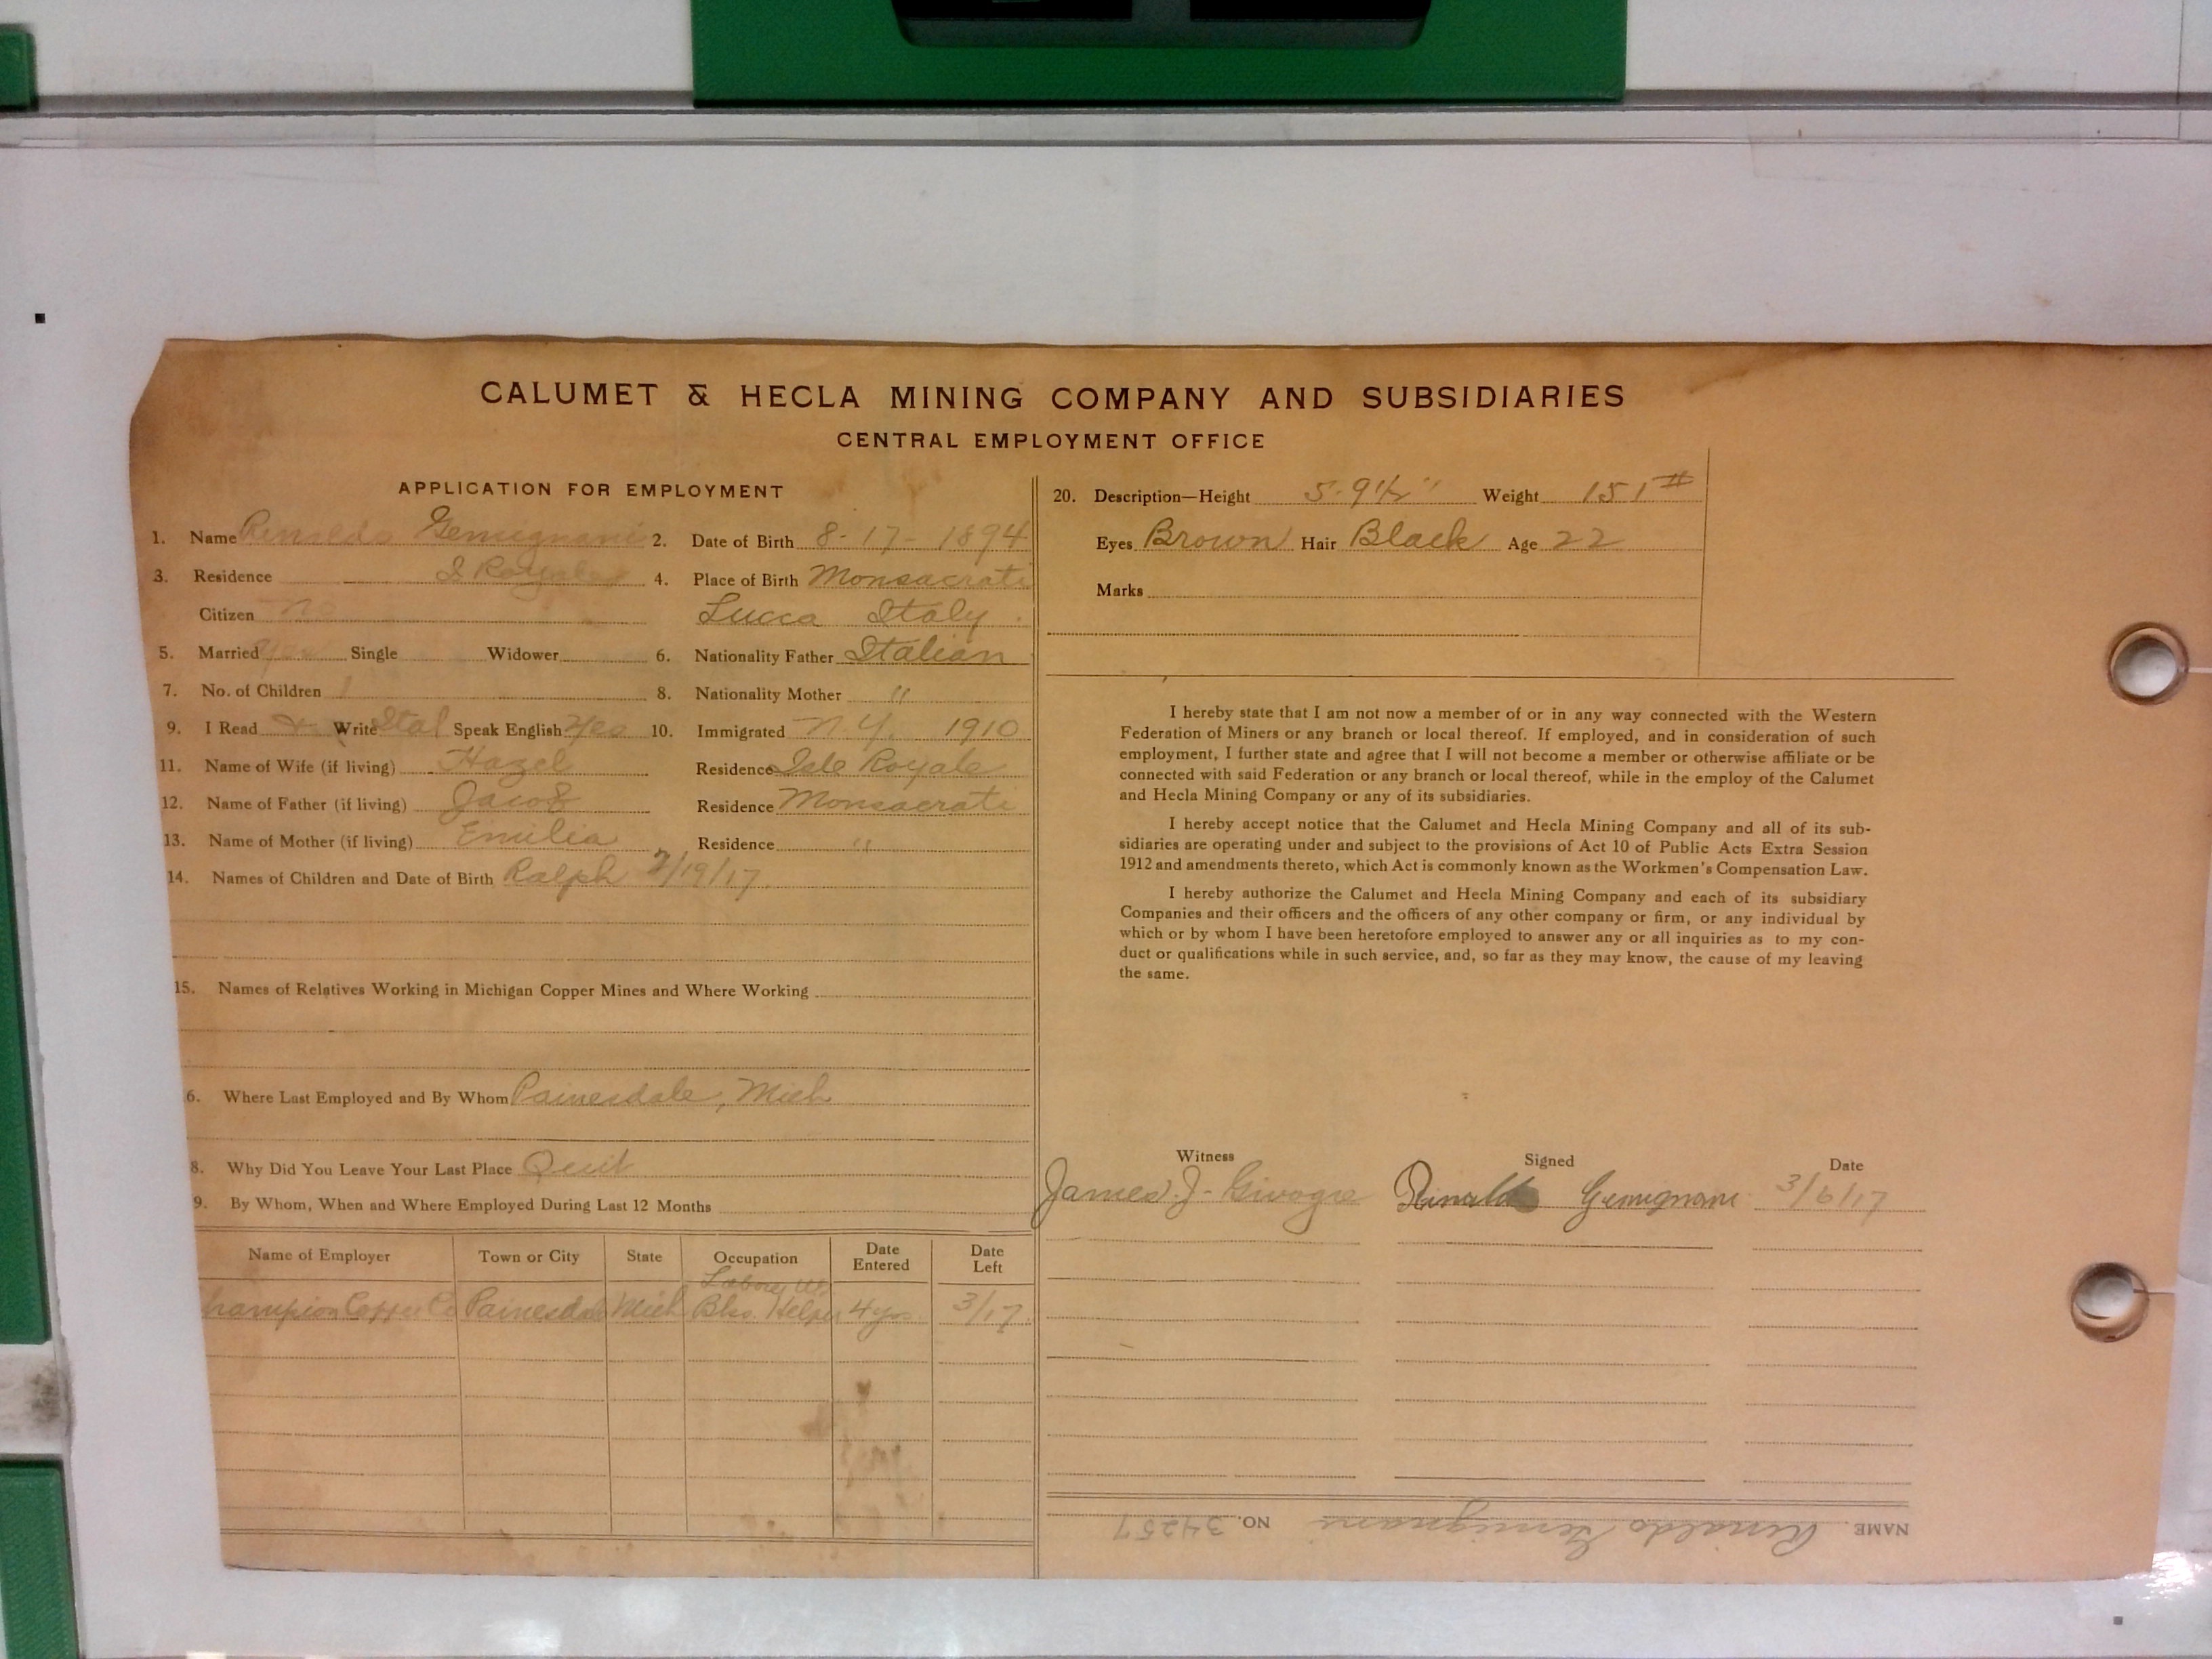 CALUMET & HECLA MINING COMPANY AND SUBSIDIARIES
CENTRAL EMPLOYMENT OFFICE
APPLICATION FOR EMPLOYMENT
1. Name Rinaldo Gemignani 2. Date of Birth 8-17-1894
3. Residence I Royale 4. Place of Birth Monsacrati
Citizen no Lucca Italy
5. Married Yes Single Widower 6. Nationality Father Italian
7. No. of Children 1 8. Nationality Mother "
9. I Read & Write Ital Speak English Yes 10. Immigrated N.Y. 1910
11. Name of Wife (if living) Hazel Residence Isle Royale
12. Name of Father (if living) Jacob Residence Monsacrati
13. Name of Mother (if living) Emilia Residence "
14. Names of Children and Date of Birth Ralph 2/19/17.
15. Names of Relatives Working in Michigan Copper Mines and Where Working
6. Where Last Employed and By Whom Painesdale, Mich
8. Why Did You Leave Your Last Place Quit
9. By Whom, When and Where Employed During Last 12 Months
Name of Employer Town or City State Occupation Date Entered Date Left
Labory
hampion Copper Co Painesdale Mich Bks. Helper 4 yrs. 3/17.
20. Description—Height 5-9½" Weight 151#
Eyes Brown Hair Black Age 22
Marks
I hereby state that I am not now a member of or in any way connected with the Western
Federation of Miners or any branch or local thereof. If employed, and in consideration of such
employment, I further state and agree that I will not become a member or otherwise affiliate or be
connected with said Federation or any branch or local thereof, while in the employ of the Calumet
and Hecla Mining Company or any of its subsidiaries.
I hereby accept notice that the Calumet and Hecla Mining Company and all of its sub-
sidiaries are operating under and subject to the provisions of Act 10 of Public Acts Extra Session
1912 and amendments thereto, which Act is commonly known as the Workmen's Compensation Law.
I hereby authorize the Calumet and Hecla Mining Company and each of its subsidiary
Companies and their officers and the officers of any other company or firm, or any individual by
which or by whom I have been heretofore employed to answer any or all inquiries as to my con-
duct or qualifications while in such service, and, so far as they may know, the cause of my leaving
the same.
Witness Signed Date
James J. Givogre Rinaldo Gemignani 3/6/17
NAME Rinaldo Gemignani NO. 34257